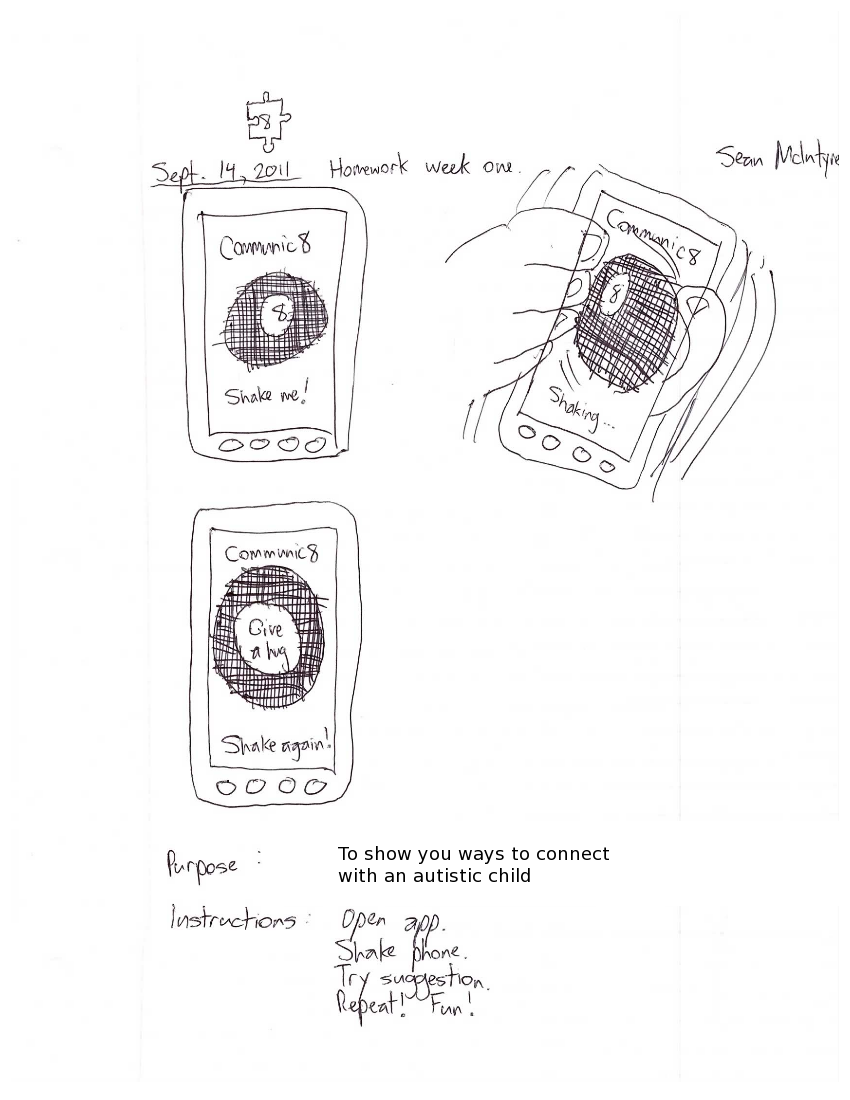 8
Sept. 14, 2011 Homework week one.
Sean McIntyre
Communic8
8
Shake me!
Communic8
8
Shaking...
Communic8
Give
a hug
Shake again!
Purpose :
To show you ways to connect
with an autistic child
Instructions :
Open app.
Shake phone.
Try suggestion.
Repeat! Fun!